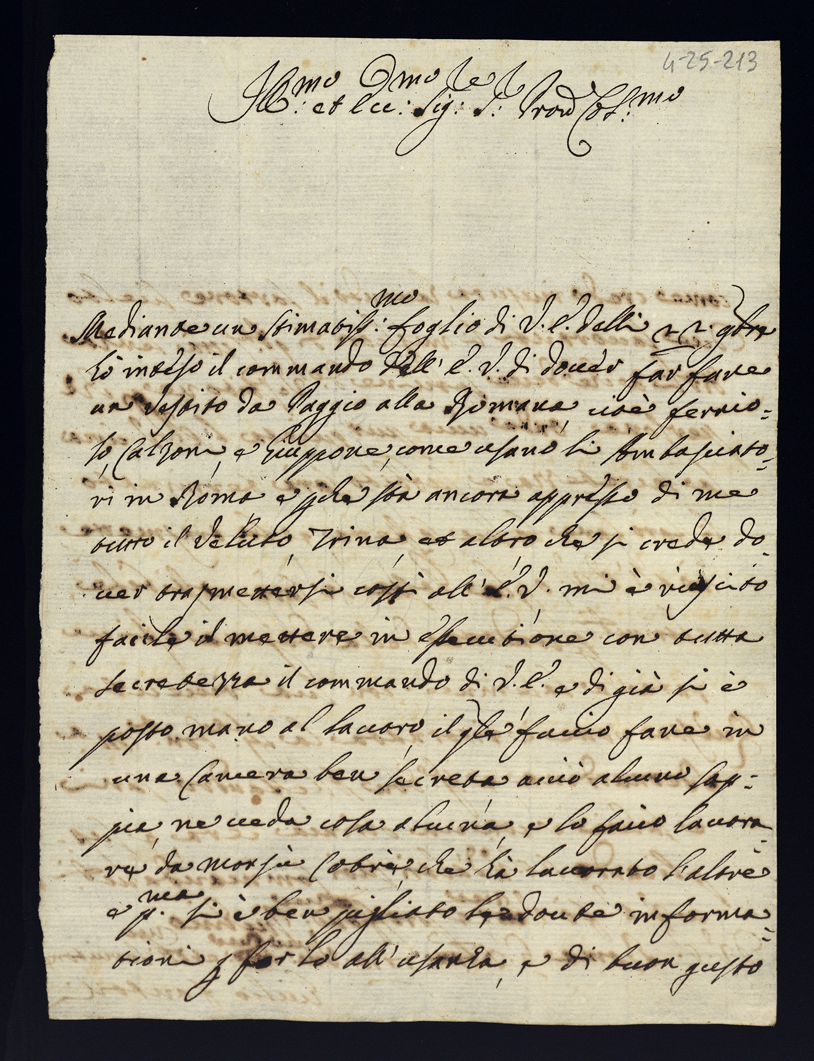 4-25-213
Ill:mo et Ecc:mo Sig: S: Pron Col:mo
Mediante un stimatiss:mo foglio di V. E. delli 22 9bre
hò inteso il commando dell' E. V. di dover far fare
un vestito da Paggio alla Romana, cioè ferrio=
lo, Calzoni, e Giuppone, come usano li Ambasciato=
ri in Roma e perche stà ancora appresso di me
tutto il veluto, Trina, et altro che si crede do=
ver trasmettersi costi all' E. V. mi è riuscito
facile il mettere in essecutione con tutta
secretezza il commando di V. E. e di già si è
posto mano al lavoro, il qle faccio fare in
una Camera ben secreta acciò alcuno sap=
pia, ne veda cosa alcuna, e lo faccio lavora=
re da monsù che hà lavorato l'altre
e p.ma si è ben pigliato le dovute informa=
tioni p farlo all'usanza, e di buon gusto